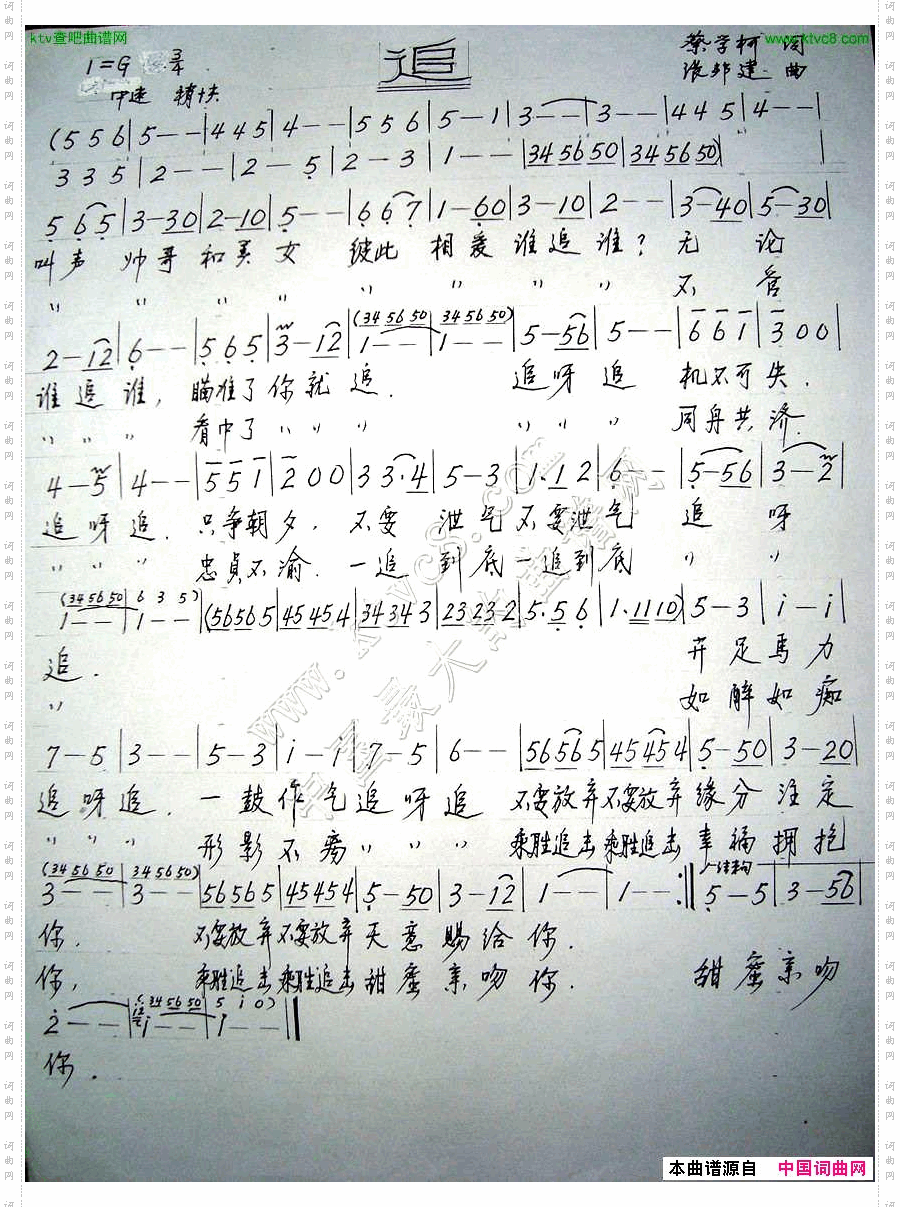 ktv查吧曲谱网
www.ktvc8.com
追
1=G 3/4
中速 稍快
蔡学柯 词
张邦建 曲
(5 5 6|5 - -|4 4 5|4 - -|5 5 6|5 - 1|3 - -|3 - -|4 4 5|4 - -|
3 3 5|2 - -|2 - 5|2 - 3|1 - -|34 56 50|34 56 50)|
5 6 5|3 - 30|2 - 10|5 - -|6 6 7|1 - 60|3 - 10|2 - -|3 - 40|5 - 30|
叫声 帅哥和美女 彼此 相爱谁追谁？无 论
〃 〃 〃 〃 〃 〃 〃 〃 不 管
2 - 12|6 - -|5 6 5|3 - 12|1 - -|1 - -|5 - 56|5 - -|6 6 1|3 0 0|
(34 56 50|34 56 50)
谁追谁，瞄准了你就追. 追呀追 机不可失.
〃 〃 〃 看中了 〃 〃 〃 〃 〃 〃 同舟共济.
4 - 5|4 - -|5 5 1|2 0 0|3 3·4|5 - 3|1·1 2|6 - -|5 - 56|3 - 2|
追呀追. 只争朝夕. 不要 泄气不要泄气 追 呀
〃 〃 〃 忠贞不渝. 一追 到底一追到底 〃 〃
(34 56 50|6 3 5)
1 - -|1 - -|(56 56 5|45 45 4|34 34 3|23 23 2|5·5 6|1·11 10)|5 - 3|i - i|
追. 开足马力
〃 如醉如痴
7 - 5|3 - -|5 - 3|i - i|7 - 5|6 - -|56 56 5|45 45 4|5 - 50|3 - 20|
追呀追. 一鼓作气追呀追 不要放弃不要放弃缘分注定
〃 〃 〃 形影不离 〃 〃 〃 乘胜追击乘胜追击幸福拥抱
(34 56 50|34 56 50)
3 - -|3 - -|56 56 5|45 45 4|5 - 50|3 - 12|1 - -|1 - -:‖5 - 5|3 - 56|
结束句
你. 不要放弃不要放弃天意赐给你.
你, 乘胜追击乘胜追击甜蜜亲吻你. 甜蜜亲吻
(34 56 50|5 i 0)
2 - -|i - -|i - -‖
你.
www.ktvc8.com
本曲谱源自 中国词曲网